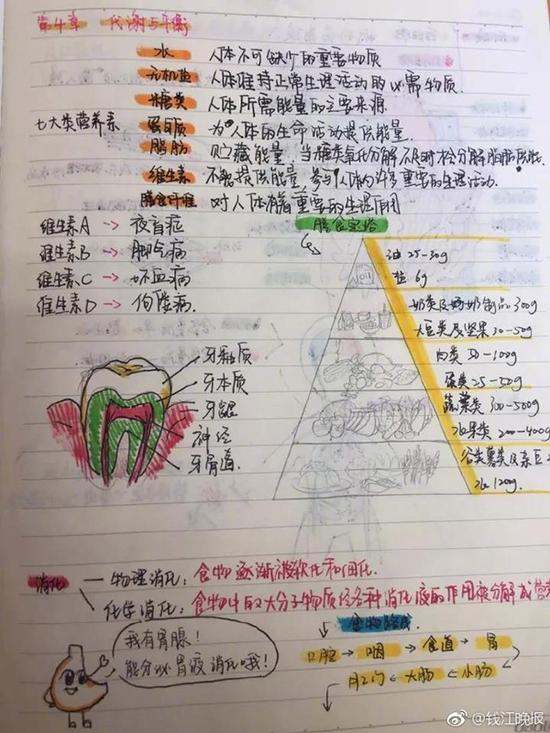 第4章 代谢与平衡
七大类营养素
水 人体不可缺少的重要物质
无机盐 人体维持正常生理活动的必需物质.
糖类 人体所需能量的主要来源
蛋白质 为人体的生命活动提供能量.
脂肪 贮藏能量,当糖类氧化分解不及时才会分解脂肪供能.
维生素 不能提供能量,参与人体内许多重要的生理活动.
膳食纤维 对人体有着重要的生理作用
维生素A → 夜盲症
维生素B → 脚气病
维生素C → 坏血病
维生素D → 佝偻病
膳食宝塔
油 25-30g
盐 6g
奶类及奶制品 300g
大豆类及坚果 30-50g
肉类 50-100g
蛋类 25-50g
蔬菜类 300-500g
水果类 200-400g
谷类薯类及杂豆
水 1200g
牙釉质
牙本质
牙龈
神经
牙骨道
消化
物理消化: 食物逐渐被软化和
化学消化: 食物中的大分子物质经各种消化液的作用被分解成营
食物经
口腔→咽→食道→胃
肛门←大肠←小肠
我有胃腺!
能分泌胃液消化哦!
@钱江晚报